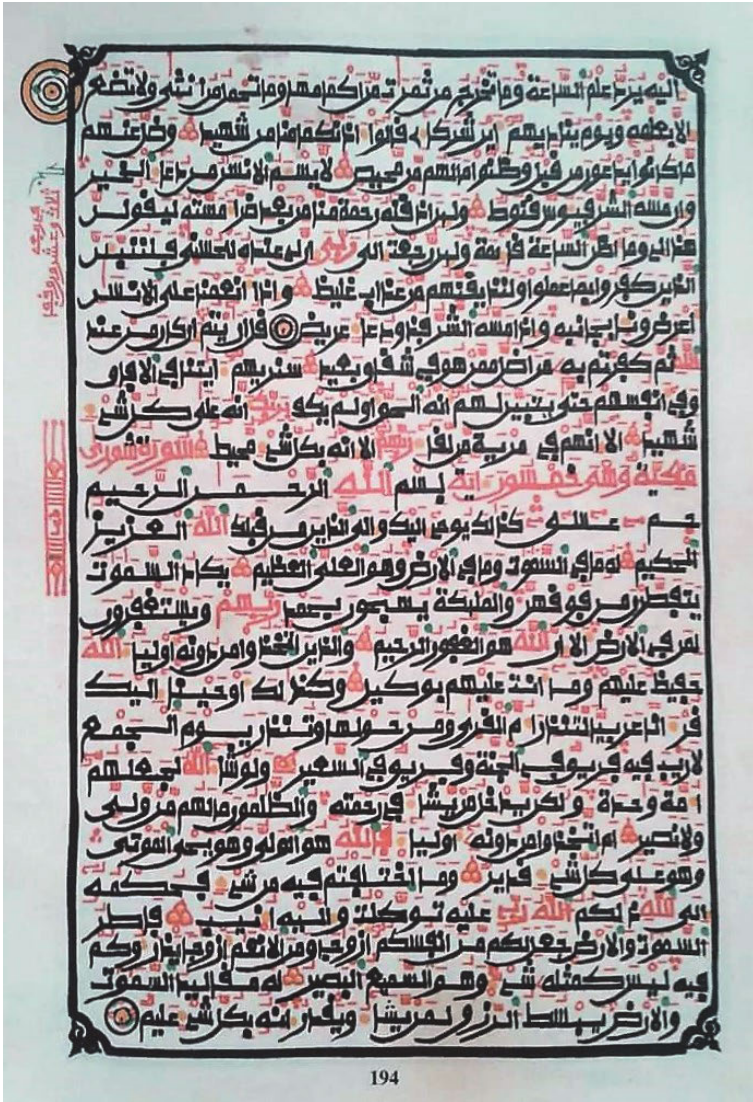 اليه يرد علم الساعة وما تخرج من ثمرت من اكمامها وما تحمل من انثى ولا تضع
الا بعلمه ويوم يناديهم اين شركاءي قالوا اذنك ما منا من شهيد وضل عنهم
ما كانوا يدعون من قبل وظنوا ما لهم من محيص لا يسم الانسن من دعاء الخير
وان مسه الشر فيوس قنوط ولين اذقنه رحمة منا من بعد ضراء مسته ليقولن
هذا لي وما اظن الساعة قايمة ولين رجعت الى ربي ان لي عنده للحسنى فلننبين
الذين كفروا بما عملوا ولنذيقنهم من عذاب غليظ واذا انعمنا على الانسن
اعرض ونا بجانبه واذا مسه الشر فذو دعاء عريض قل اريتم ان كان من عند
الله ثم كفرتم به من اضل ممن هو في شقاق بعيد سنريهم ايتنا في الافاق
وفي انفسهم حتى يتبين لهم انه الحق اولم يكف بربك انه على كل شيء
شهيد الا انهم في مرية من لقاء ربهم الا انه بكل شيء محيط السورة شورى
مكية وهي خمسون اية بسم الله الرحمن الرحيم
حم عسق كذلك يوحي اليك والى الذين من قبلك الله العزيز
الحكيم له ما في السموت وما في الارض وهو العلي العظيم يكاد السموت
يتفطرن من فوقهن والمليكة يسبحون بحمد ربهم ويستغفرون
لمن في الارض الا ان الله هو الغفور الرحيم والذين اتخذوا من دونه اولياء الله
حفيظ عليهم وما انت عليهم بوكيل وكذلك اوحينا اليك
قرءانا عربيا لتنذر ام القرى ومن حولها وتنذر يوم الجمع
لا ريب فيه فريق في الجنة وفريق في السعير ولو شاء الله لجعلهم
امة وحدة ولكن يدخل من يشاء في رحمته والظلمون ما لهم من ولي
ولا نصير ام اتخذوا من دونه اولياء فالله هو الولي وهو يحي الموتى
وهو على كل شيء قدير وما اختلفتم فيه من شيء فحكمه
الى الله ذلكم الله ربي عليه توكلت واليه انيب فاطر
السموت والارض جعل لكم من انفسكم ازوجا ومن الانعم ازوجا يذروكم
فيه ليس كمثله شيء وهو السميع البصير له مقاليد السموت
والارض يبسط الرزق لمن يشاء ويقدر انه بكل شيء عليم
194